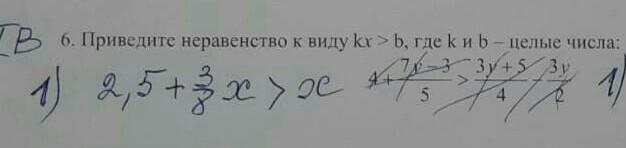 IB 6. Приведите неравенство к виду kx > b, где k и b – целые числа:
1) 2,5 + 3/8 x > x 4 + (7y − 3)/5 > (3y + 5)/4 − 3y/2 1)